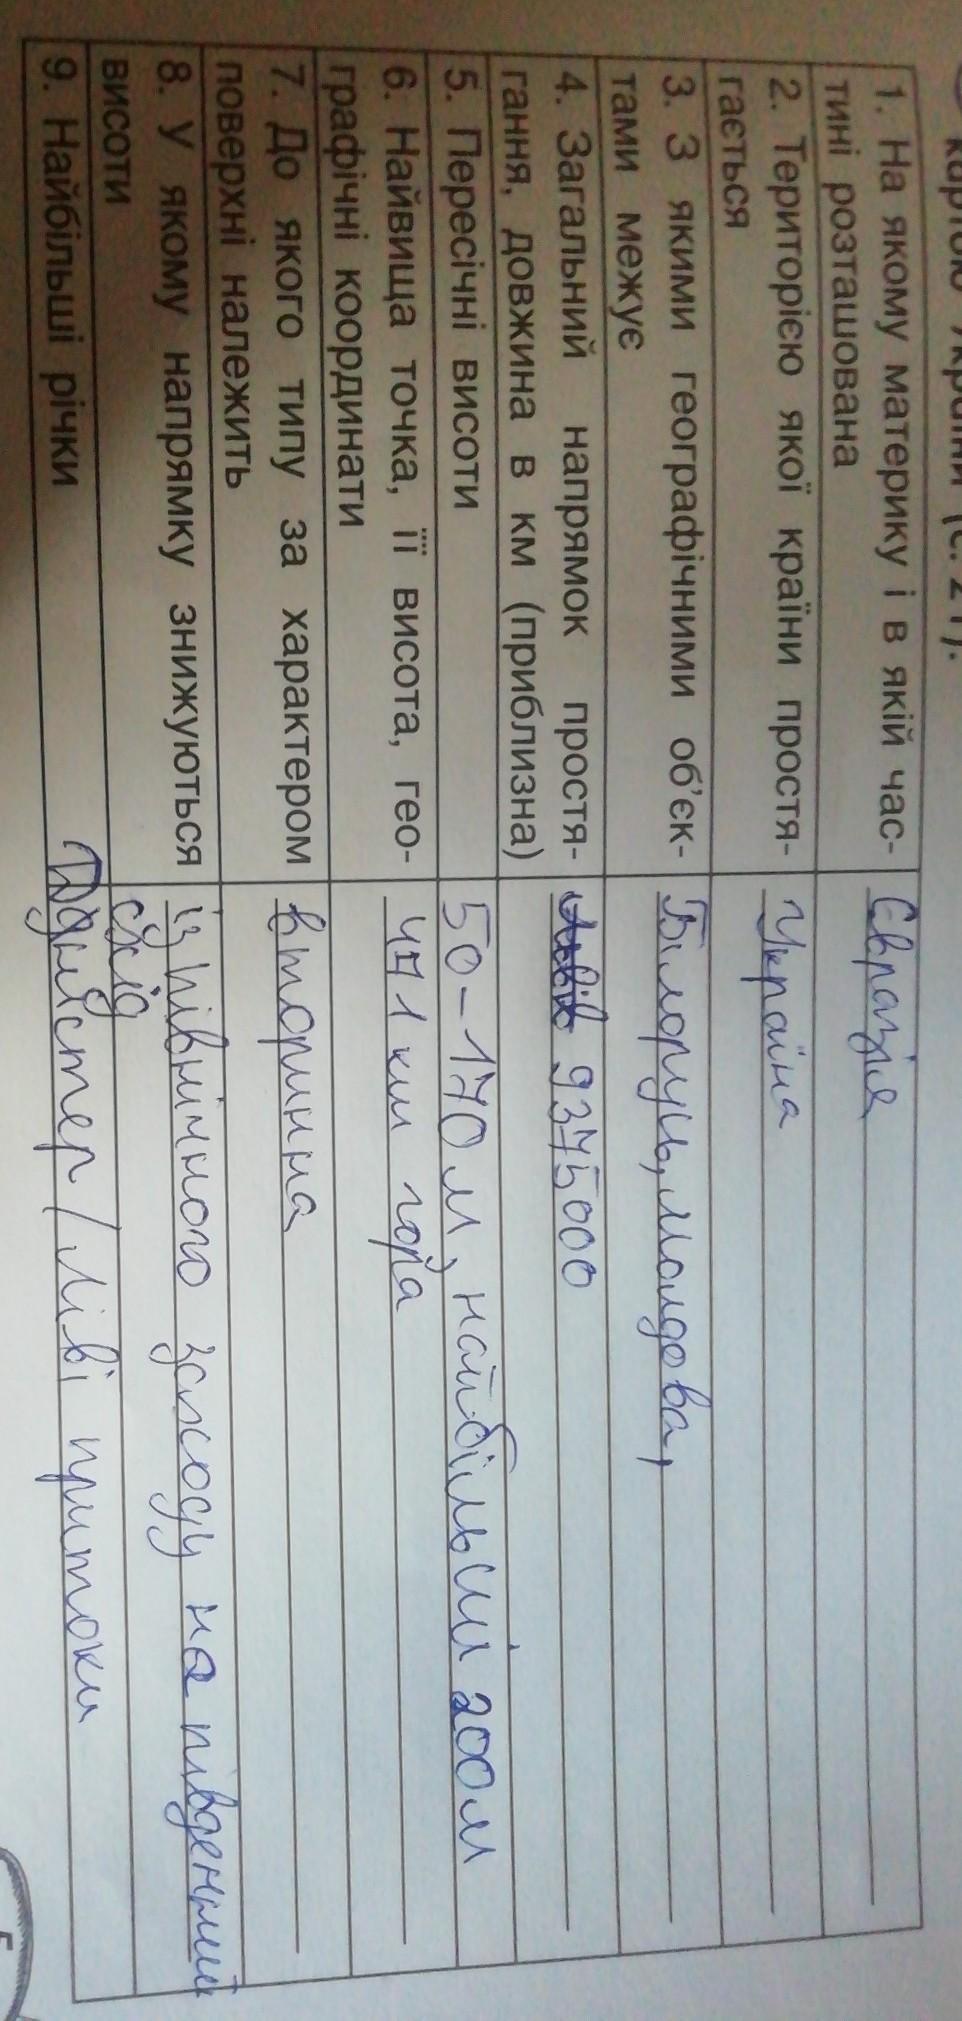 картою України (с. 21).
1. На якому материку і в якій час-
тині розташована
Євразія
2. Територією якої країни простя-
гається
Україна
3. З якими географічними об'єк-
тами межує
Білорусь, молдова,
4. Загальний напрямок простя-
гання, довжина в км (приблизна)
9375000
5. Пересічні висоти
50-170м, найбільші 200м
6. Найвища точка, її висота, гео-
графічні координати
471 км гора
7. До якого типу за характером
поверхні належить
вторинна
8. У якому напрямку знижуються
висоти
із північного заходу на південний
схід
9. Найбільші річки
Дністер/ліві притоки